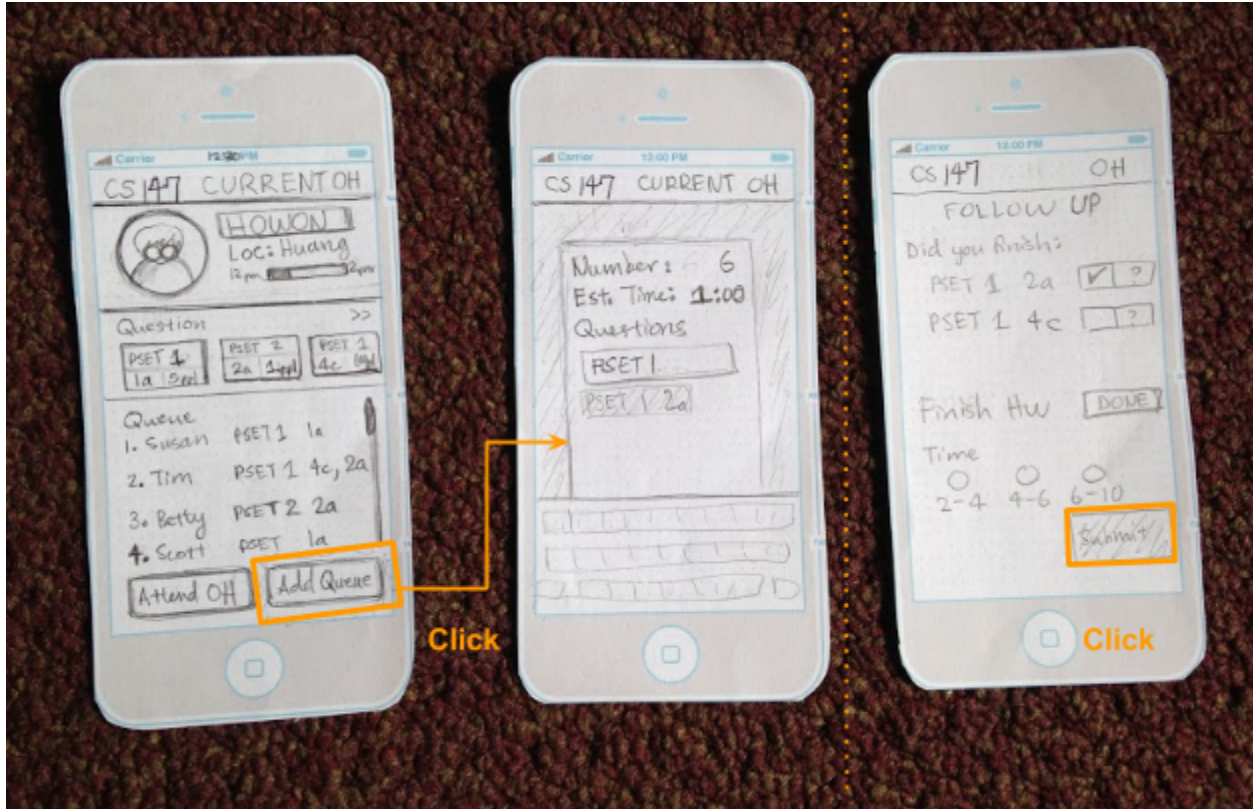 Carrier 12:30PM
CS 147 CURRENT OH
HOWON
Loc: Huang
12pm 2pm
Question >>
PSET 1 PSET 2 PSET 1
1a 5ppl 2a 1ppl 4c
Queue
1. Susan PSET 1 1a
2. Tim PSET 1 4c, 2a
3. Betty PSET 2 2a
4. Scott PSET 1a
Attend OH Add Queue
Click
Carrier 12:00 PM
CS 147 CURRENT OH
Number: 6
Est. Time: 1:00
Questions
PSET 1
PSET 1 2a
Carrier 12:00 PM
CS 147 OH
FOLLOW UP
Did you finish:
PSET 1 2a ✓ ?
PSET 1 4c ?
Finish HW DONE
Time
2-4 4-6 6-10
Submit
Click